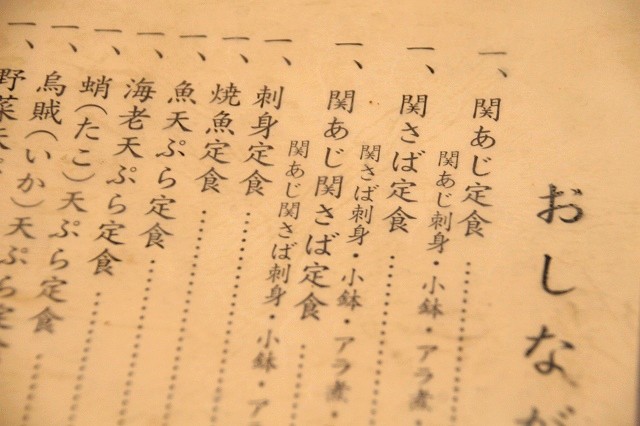 おしなが
一、関あじ定食
関あじ刺身・小鉢・アラ煮・
一、関さば定食
関さば刺身・小鉢・アラ煮・
一、関あじ関さば定食
関あじ関さば刺身・小鉢・ア
一、刺身定食
一、焼魚定食
一、魚天ぷら定食
一、海老天ぷら定食
一、蛸(たこ)天ぷら定食
一、烏賊(いか)天ぷら定食
一、野菜天ぷら定食